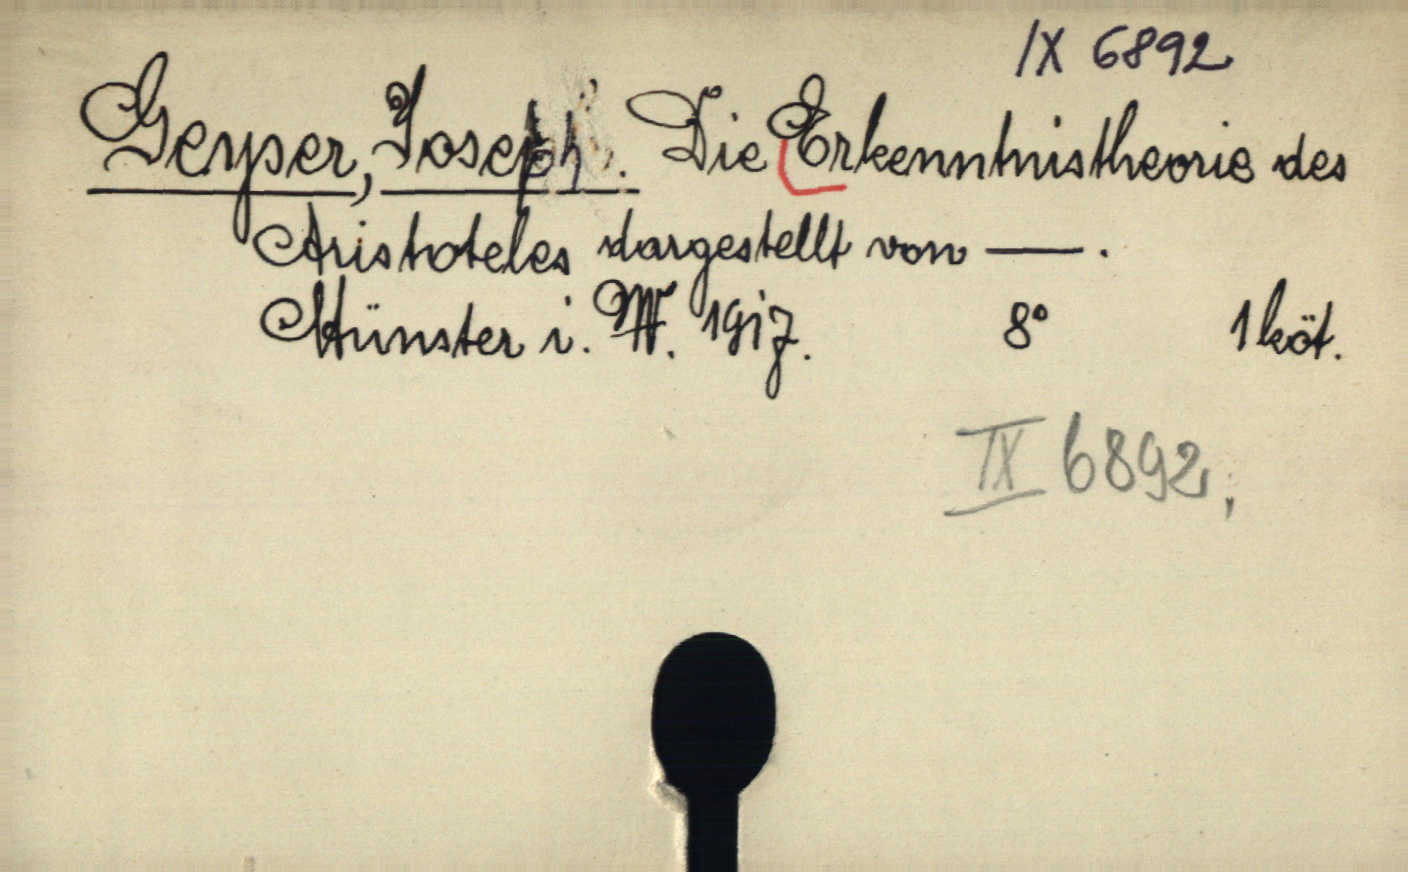 IX 6892
Geyser, Joseph. Die Erkenntnistheorie des
Aristoteles dargestellt von —.
Münster i. W. 1917. 8° 1 köt.
IX 6892.